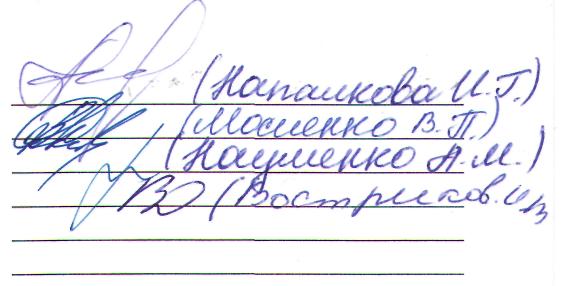 (Напалкова И.Г.)
(Мосиенко В.П.)
(Науменко А.М.)
(Востриков.